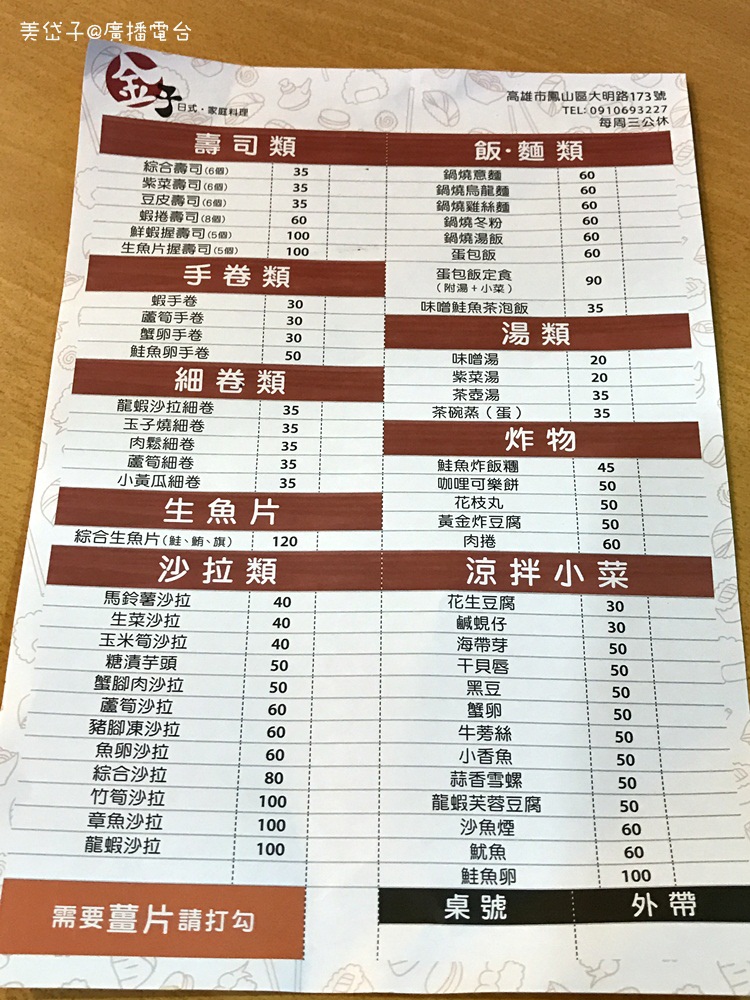 美岱子@廣播電台
金子日式·家庭料理
高雄市鳳山區大明路173號
TEL: 0910693227
每周三公休
壽司類
綜合壽司(6個) 35
紫菜壽司(6個) 35
豆皮壽司(6個) 35
蝦捲壽司(8個) 60
鮮蝦握壽司(5個) 100
生魚片握壽司(5個) 100
手卷類
蝦手卷 30
蘆筍手卷 30
蟹卵手卷 30
鮭魚卵手卷 50
細卷類
龍蝦沙拉細卷 35
玉子燒細卷 35
肉鬆細卷 35
蘆筍細卷 35
小黃瓜細卷 35
生魚片
綜合生魚片(鮭、鮪、旗) 120
沙拉類
馬鈴薯沙拉 40
生菜沙拉 40
玉米筍沙拉 40
糖漬芋頭 50
蟹腳肉沙拉 50
蘆筍沙拉 60
豬腳凍沙拉 60
魚卵沙拉 60
綜合沙拉 80
竹筍沙拉 100
章魚沙拉 100
龍蝦沙拉 100
需要薑片請打勾
飯·麵類
鍋燒意麵 60
鍋燒烏龍麵 60
鍋燒雞絲麵 60
鍋燒冬粉 60
鍋燒湯飯 60
蛋包飯 60
蛋包飯定食 90
(附湯+小菜)
味噌鮭魚茶泡飯 35
湯類
味噌湯 20
紫菜湯 20
茶壺湯 35
茶碗蒸(蛋) 35
炸物
鮭魚炸飯糰 45
咖哩可樂餅 50
花枝丸 50
黃金炸豆腐 50
肉捲 60
涼拌小菜
花生豆腐 30
鹹蜆仔 30
海帶芽 50
干貝唇 50
黑豆 50
蟹卵 50
牛蒡絲 50
小香魚 50
蒜香雪螺 50
龍蝦芙蓉豆腐 50
沙魚煙 60
魷魚 60
鮭魚卵 100
桌號 外帶